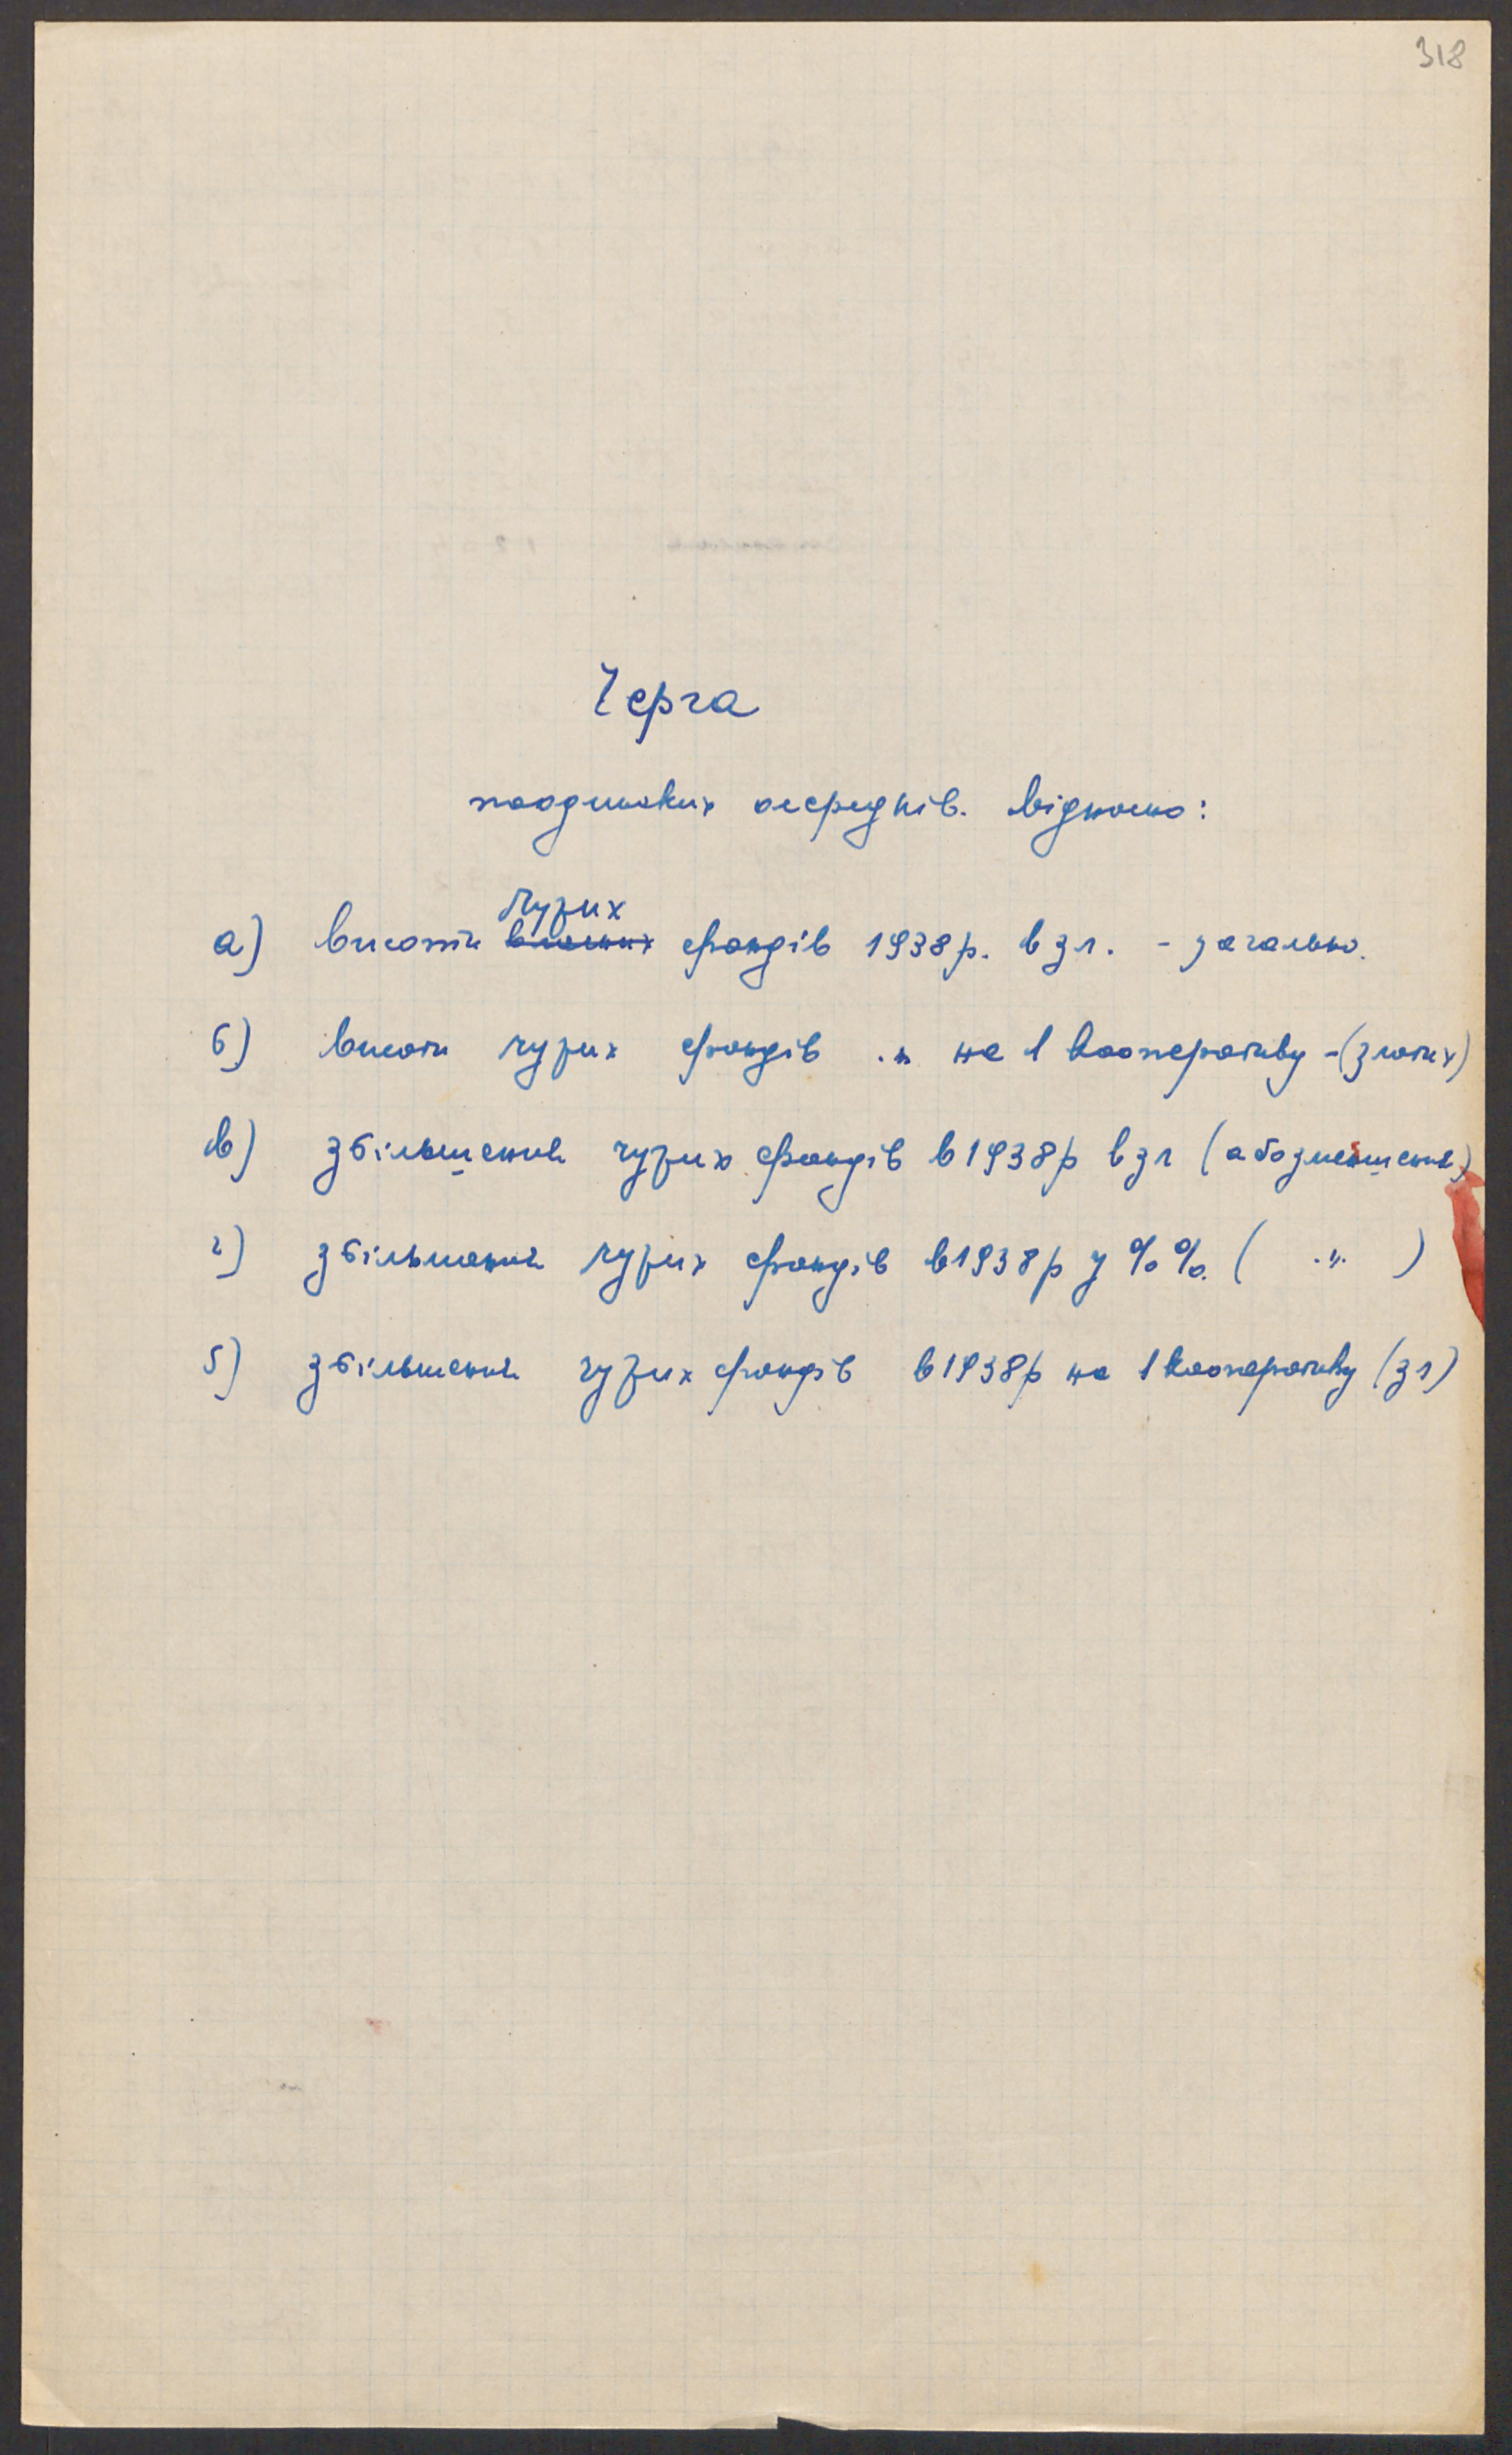 318
Черга
поодиноких осередків. відносно:
чужих
а) висоти власних фондів 1938 р. в зл. - загально.
б) висоти чужих фондів ." на 1 кооперативу - (злотих)
в) збільшення чужих фондів в 1938 р в зл (або зменшення)
г) збільшення чужих фондів в 1938 р у %%. ( .". )
5) збільшення чужих фондів в 1938 р на 1 кооперативу (зл)